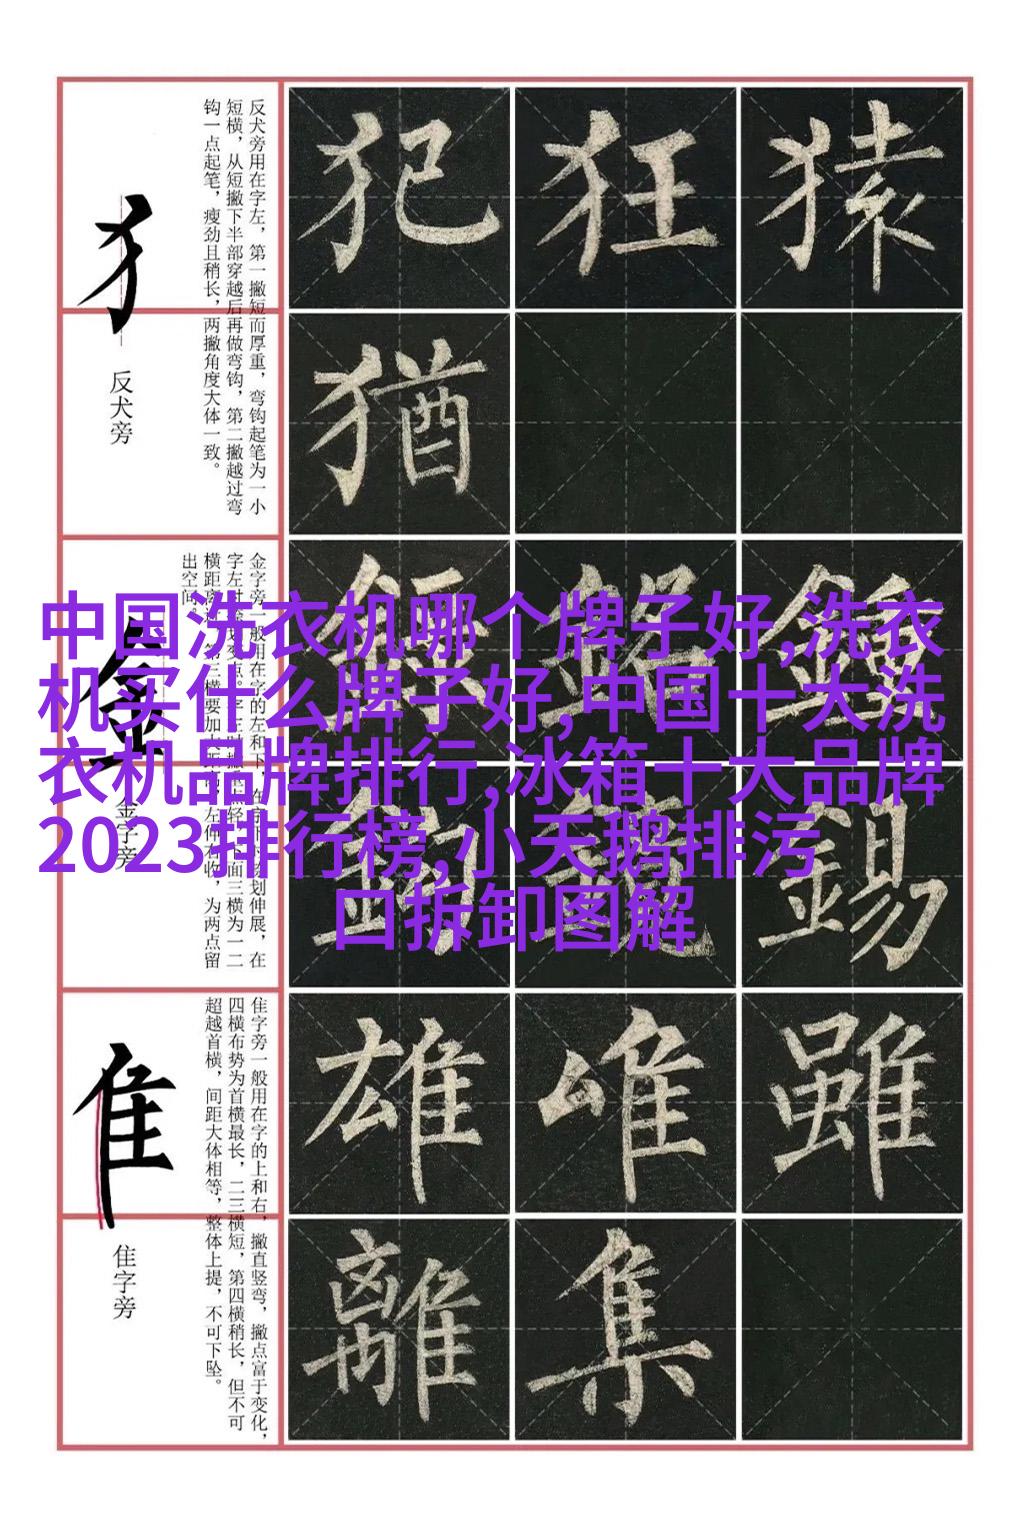 犭
反犬旁
反犬旁用在字左，第一撇短而厚重，弯钩起笔为一小
短横，从短撇下半部穿越后再做弯钩，第二撇越过弯
钩一点起笔，瘦劲且稍长，两撇角度大体一致。
犯 狂 猿
猶
金字旁
金字旁一般用在字的左和下，在 划伸展，在
字左 变点。 面三横为一二
横距 第三横要加 左伸右收，为两点留
出空间
錫
中国洗衣机哪个牌子好,洗衣
机买什么牌子好,中国十大洗
衣机品牌排行,冰箱十大品牌
2023排行榜,小天鹅排污
口拆卸图解
隹
隹字旁
隹字旁一般用在字的上和右，撇直竖弯，撇点富于变化，
四横布势为首横最长，二三横短，第四横稍长，但不可
超越首横，间距大体相等，整体上提，不可下坠。
雄 唯 雖
離 集